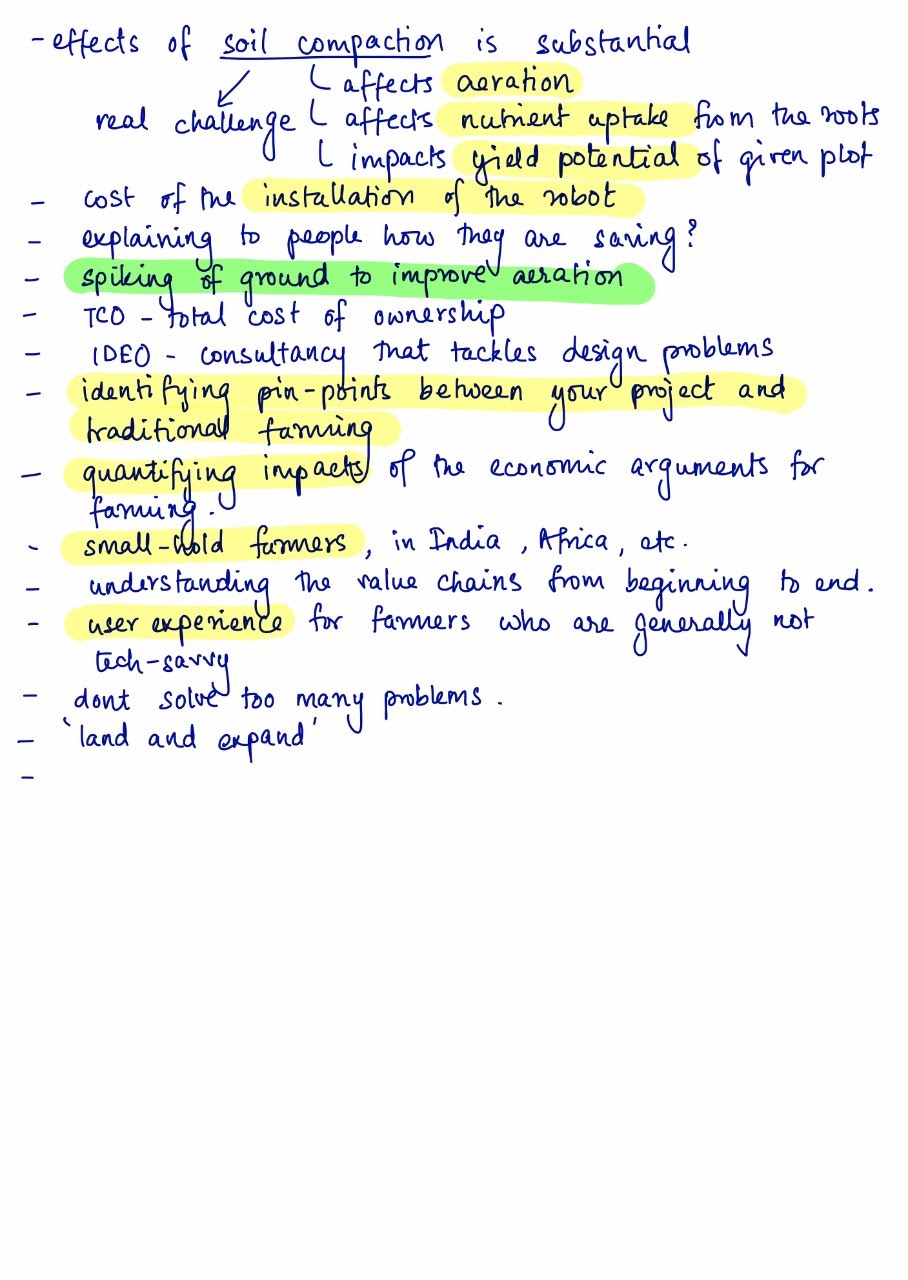 - effects of soil compaction is substantial
affects aeration
real challenge affects nutrient uptake from the roots
impacts yield potential of given plot
- cost of the installation of the robot
- explaining to people how they are saving?
- spiking of ground to improve aeration
- TCO - total cost of ownership
- IDEO - consultancy that tackles design problems
- identifying pin-points between your project and
traditional farming
- quantifying impacts of the economic arguments for
farming.
- small-hold farmers, in India, Africa, etc.
- understanding the value chains from beginning to end.
- user experience for farmers who are generally not
tech-savvy
- dont solve too many problems.
- 'land and expand'
-